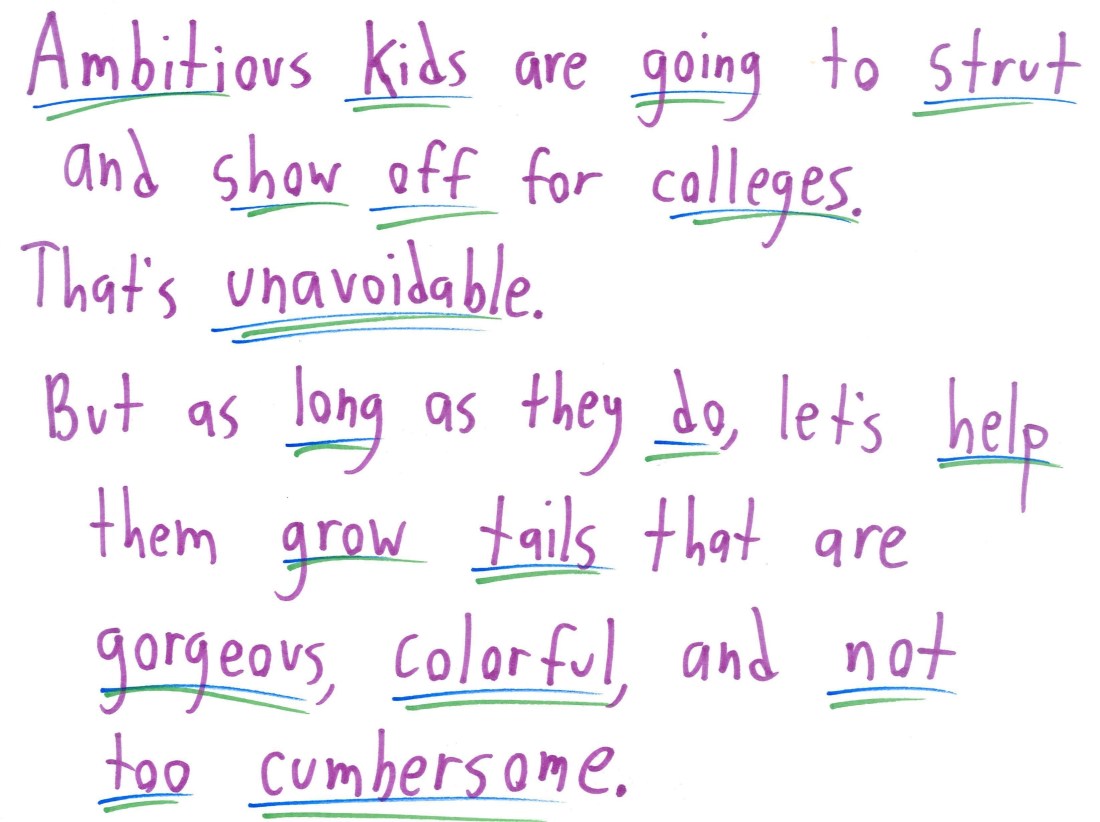 Ambitious kids are going to strut
and show off for colleges.
That's unavoidable.
But as long as they do, let's help
them grow tails that are
gorgeous, colorful, and not
too cumbersome.